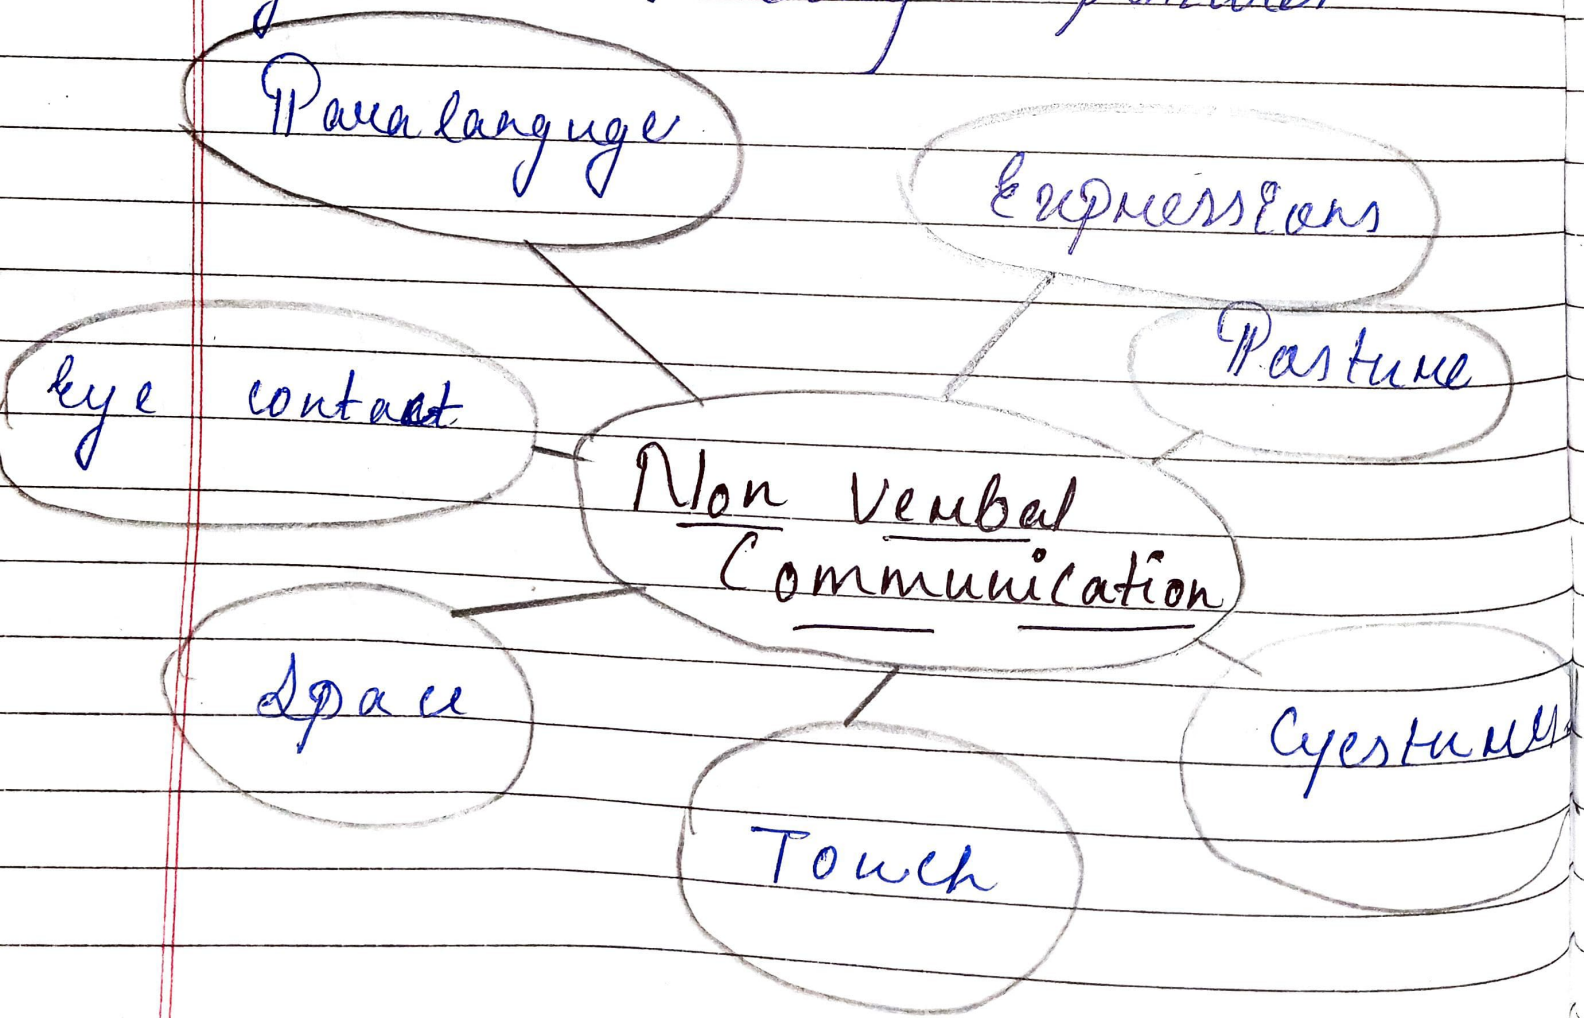 Paralanguge
Expressions
Posture
Eye contact
Non Verbal
Communication
Space
Gestures
Touch